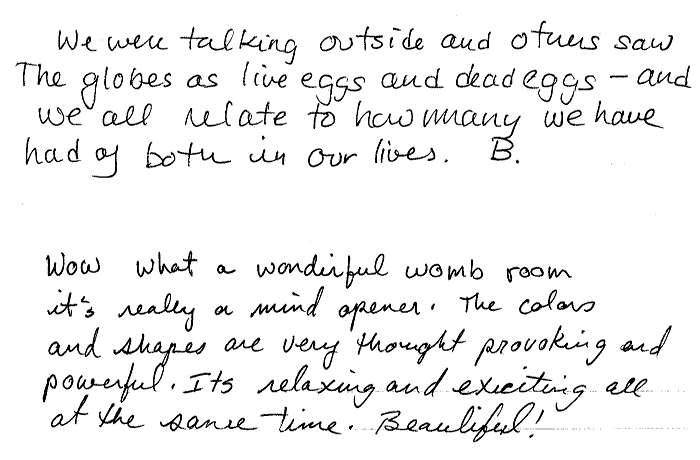 We were talking outside and others saw
The globes as live eggs and dead eggs – and
we all relate to how many we have
had of both in our lives. B.
Wow what a wonderful womb room
it's really a mind opener. The colors
and shapes are very thought provoking and
powerful. Its relaxing and execiting all
at the same time. Beautiful!